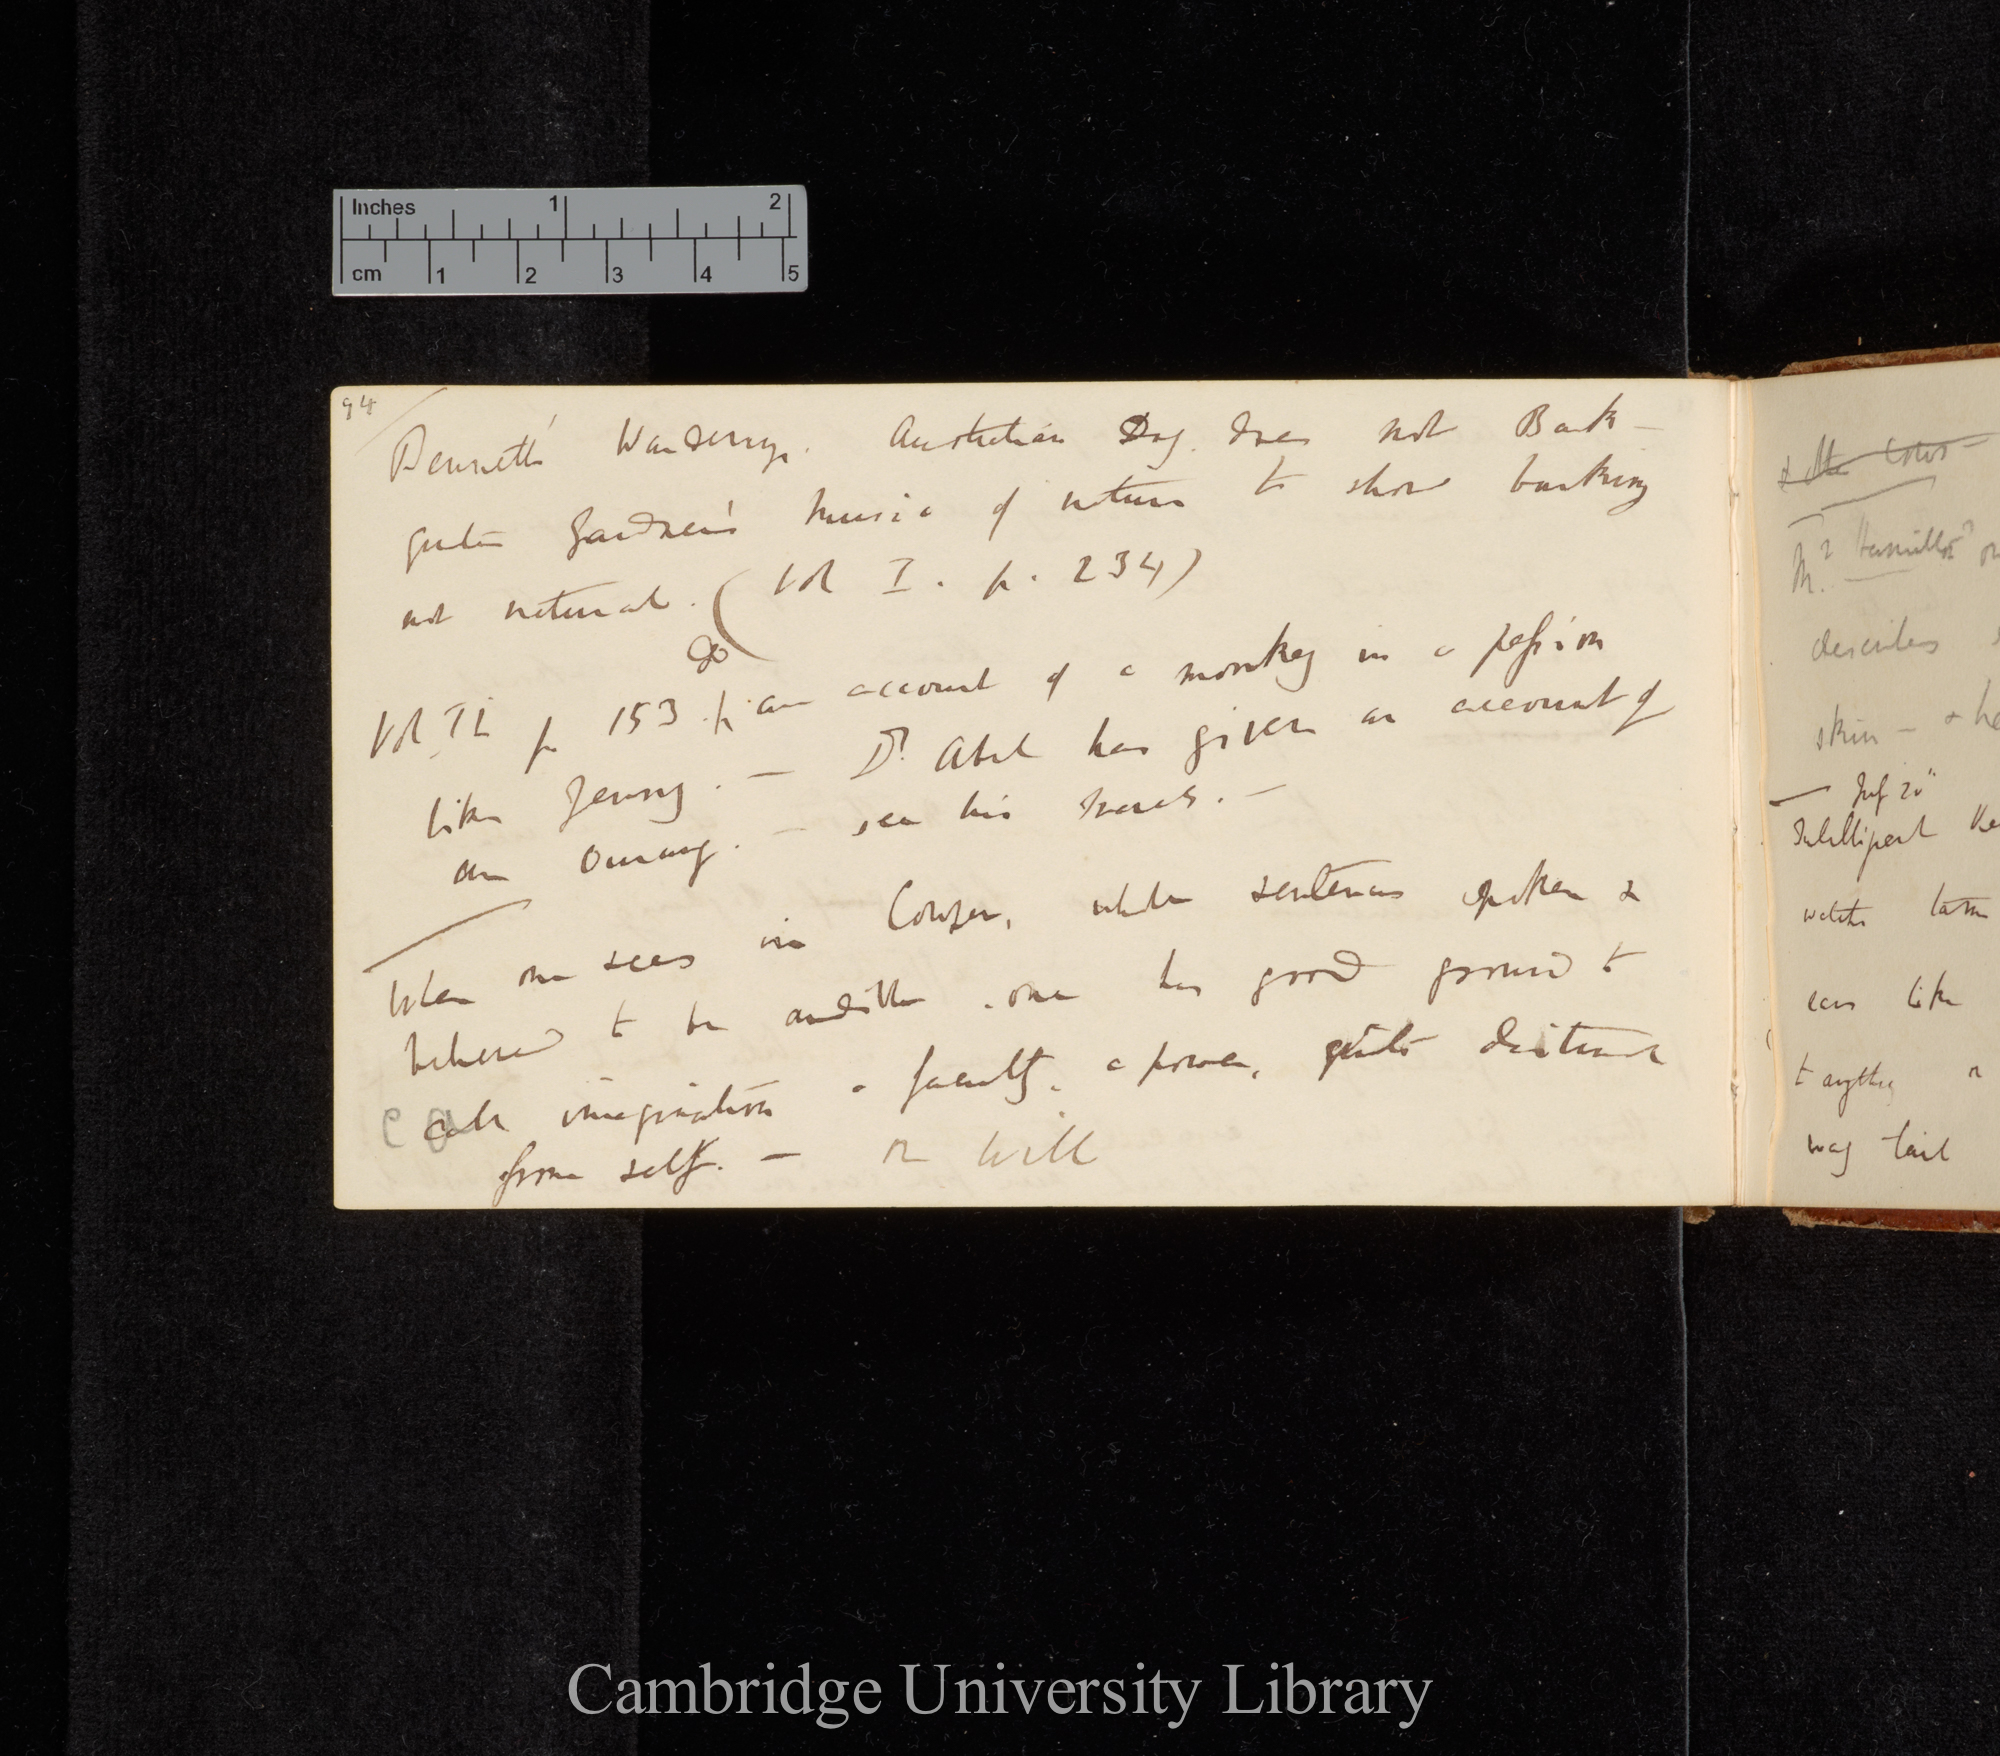 Inches 1 2
cm 1 2 3 4 5
94
Bennett's Wanderings. Australian Dog does not Bark —
quotes Gardner's Music of nature to show barking
not natural. (Vol I. p. 234)
do
Vol. II p 153 . p. an account of a monkey in a passion
like Jenny. — Dr. Abel has given an account of
an Ourang. — see his travels. —
When one sees in Cowper, whole sentences spoken &
believed to be audible, one has good ground to
call imagination a faculty, a power, quite distinct
from self. — or will
& the color
Mr. Hamilton
describes
skin — & he
— 20
Intelligent
watch
ears like
to anything
wag tail
Cambridge University Library